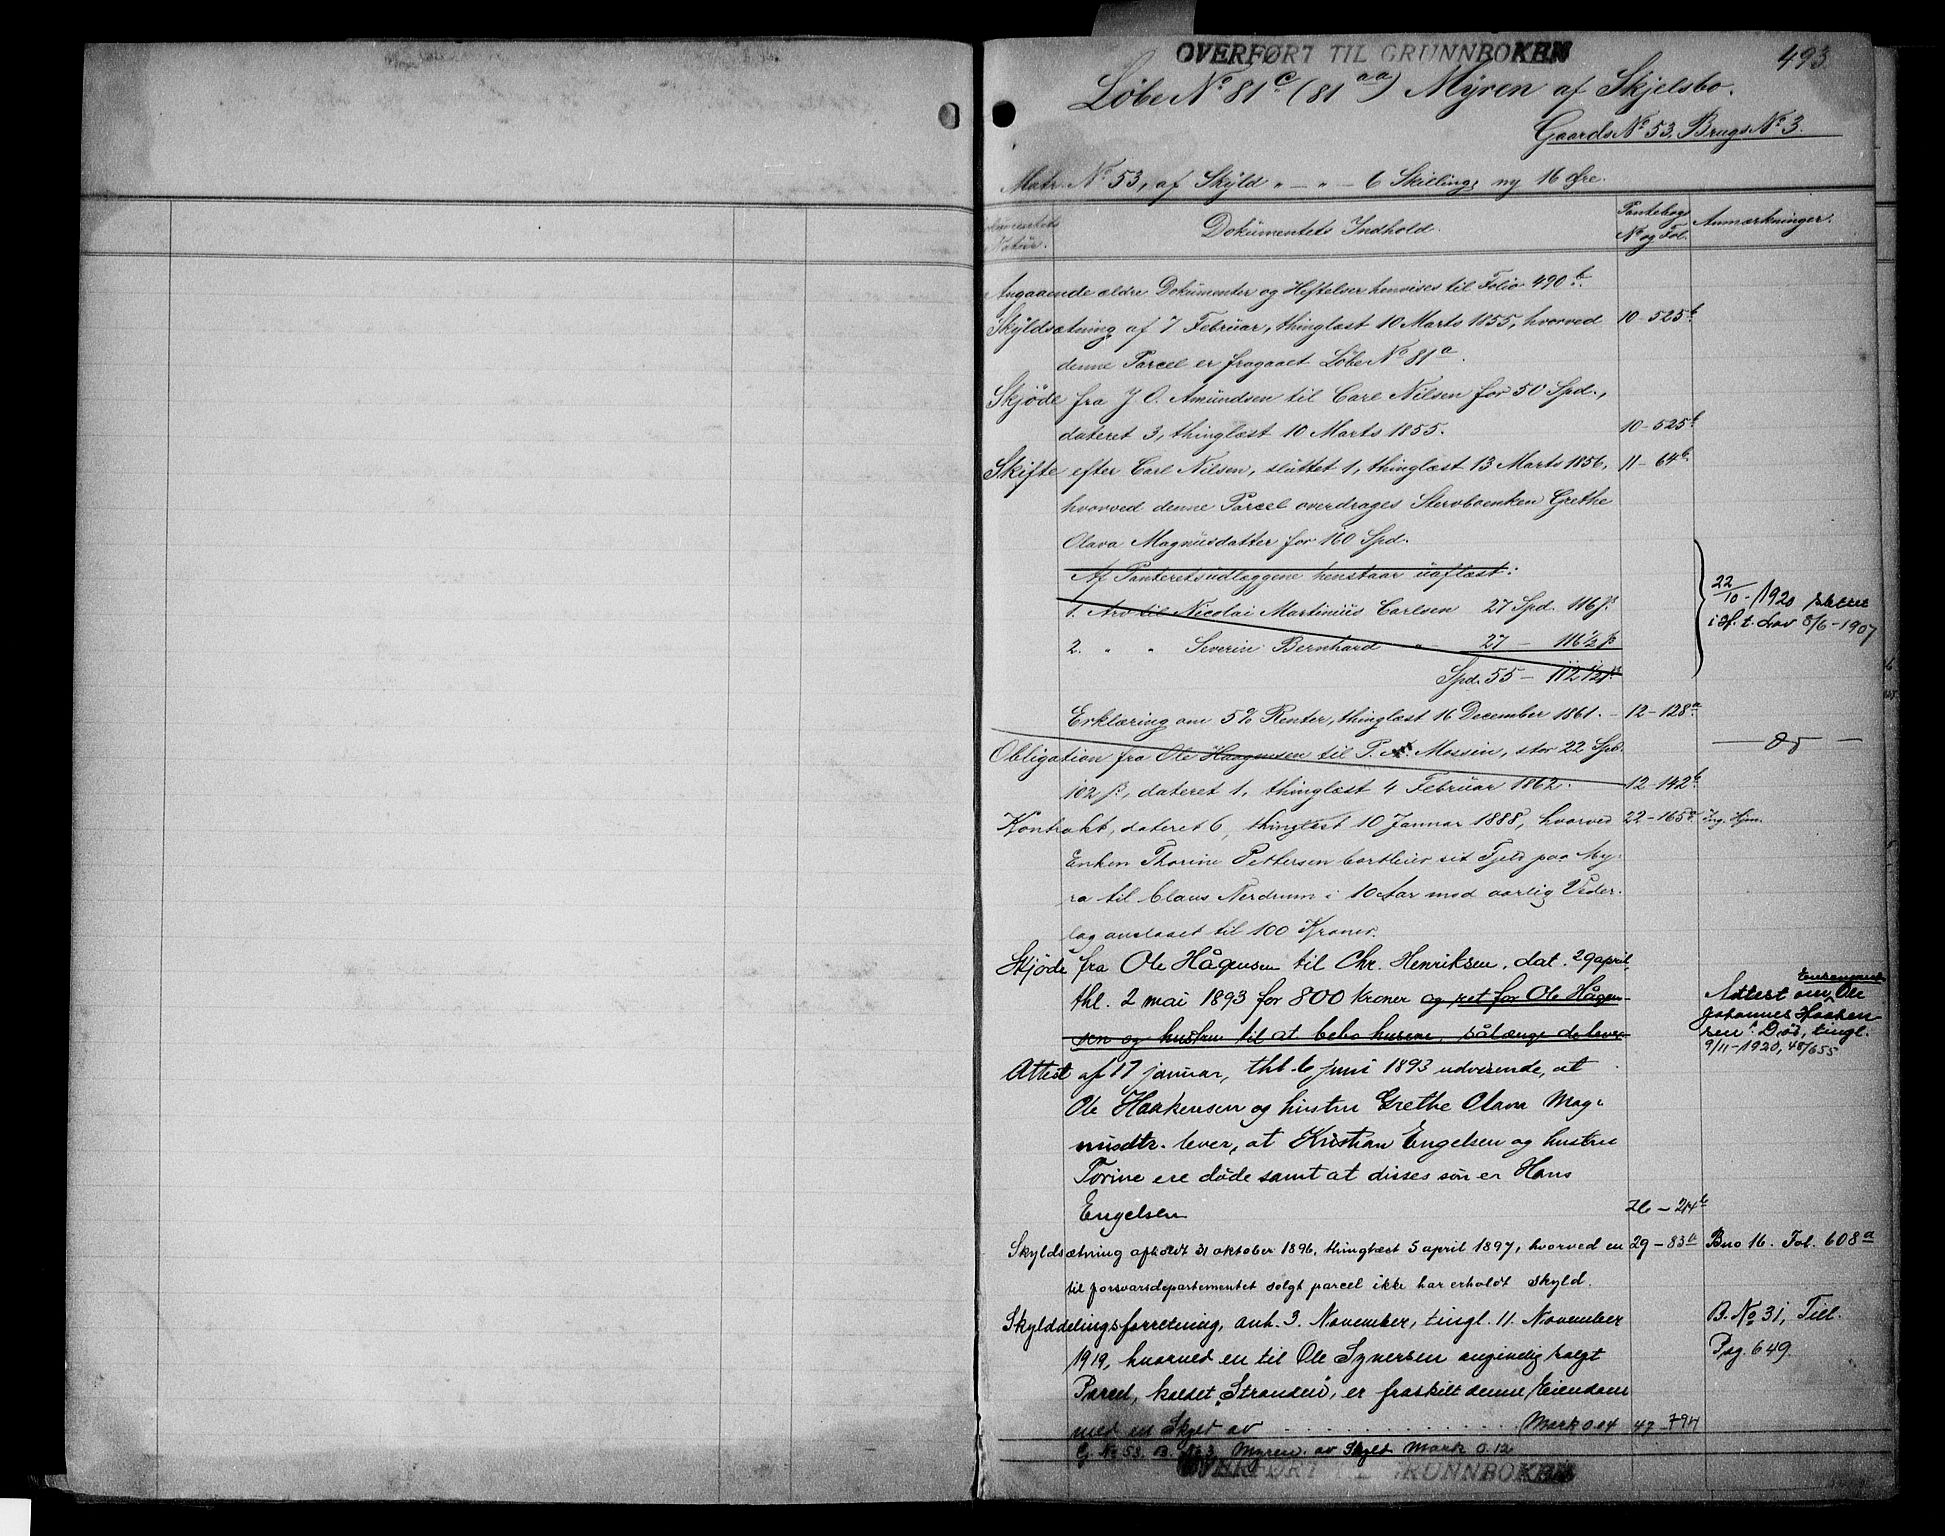 OVERFØRT TIL GRUNNBOKEN
493
Løbe No 81c (81aa) Myren af Skjelsbo.
Gaards No 53, Brugs No 3.
Matr. No 53, af Skyld " – " – 6 Skilling; ny 16 Øre.
Dokumentets Indhold.
Pantebog No og Fol.
Anmærkninger.
Angaaende ældre Dokumenter og Heftelser henvises til Folio 490b.
Skyldsætning af 7 Februar, thinglæst 10 Marts 1855, hvorved 10-525b
denne Parcel er fragaaet Løbe No 81a.
Skjöde fra J. O. Amundsen til Carl Nilsen for 50 Spd.,
dateret 3, thinglæst 10 Marts 1855. 10-525b
Skifte efter Carl Nilsen, sluttet 1, thinglæst 13 Marts 1856, 11-64b
hvorved denne Parcel overdrages Stervboenken Grethe
Olava Magnusdatter for 160 Spd.
Af Panteretsudlæggene henstaar uaflæst:
1. Arv til Nicolai Martinius Carlsen 27 Spd. 116 ß.
2. " " Severin Bernhard " 27 – 116 1/2 ß
Spd. 55 – 112 1/2 ß
22/10-1920 slettet
i H. t. Lov 8/6-1907
Erklæring om 5% Renter, thinglæst 16 December 1861. – 12-128a
Obligation fra Ole Haagensen til P. Mossin, stor 22 Spd.
102 ß, dateret 1, thinglæst 4 Februar 1862. 12-142b
Kontrakt, dateret 6, thinglæst 10 Januar 1888, hvorved 22-165
Enken Thorine Pettersen bortleier sit Fjeld paa My-
ra til Claus Nerdrum i 10 Aar mod aarlig Veder-
lag anslaaet til 100 Kroner.
Skjøde fra Ole Hågensen til Chr. Henriksen, dat. 29 april,
thl. 2 mai 1893 for 800 kroner og ret for Ole Hågen-
sen og hustru til at bebo husene, sålænge de lever
Attest om Ole
Johannes Haaken-
sens Død, tingl.
9/11-1920, 48/655
Attest af 17 januar, thl. 6 juni 1893 udvisende, at
Ole Haakensen og hustru Grethe Olava Mag-
nusdtr. lever, at Kristian Engelsen og hustru
Torine ere døde samt at disses søn er Hans
Engelsen 26-214b
Skyldsætning afholdt 31 oktober 1896, thinglæst 5 april 1897, hvorved en 29-83a Bno 16. Fol. 608a
til forsvarsdepartementet solgt parcel ikke har erholdt skyld.
Skylddelingsforretning, anh. 3. November, tingl. 11. November B. No 31, Till.
1919, hvorved en til Ole Syversen angivelig solgt Pag. 649
Parcel, kaldet "Stranden", er fraskilt denne Eiendom
med en Skyld av . . . . . . Mark 0.04 47-794
G. No 53. B. No 3, Myren. av Skyld Mark 0.12
OVERFØRT TIL GRUNNBOKEN